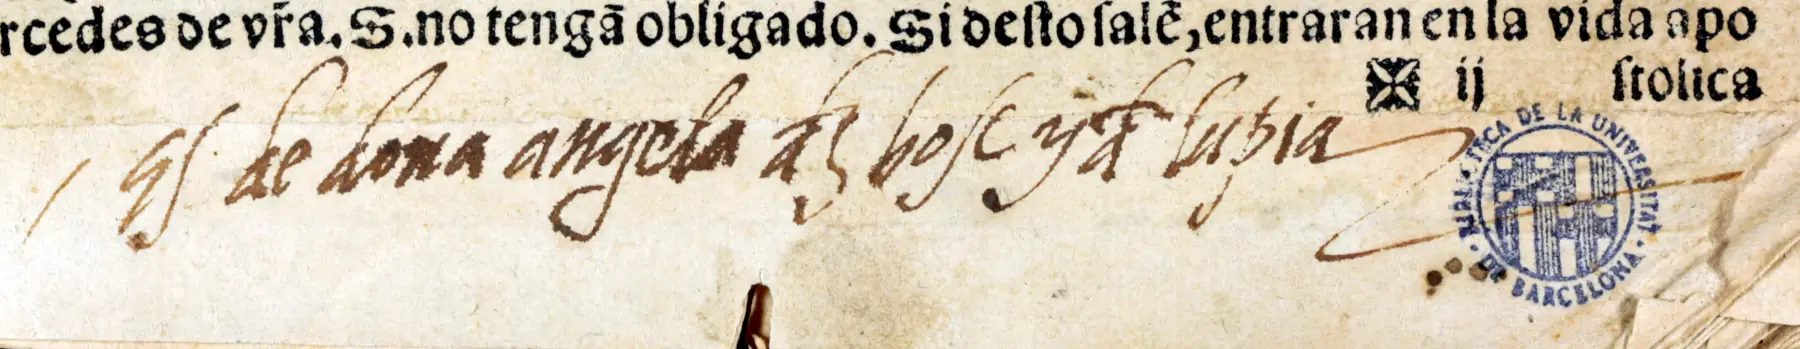 rcedes de vr̃a. S. no tengã obligado. Si desto salẽ, entraran en la vida apo
✠ ij stolica
qs de dona angela bosc y lupia
BIBLIOTECA DE LA UNIVERSITAT DE BARCELONA